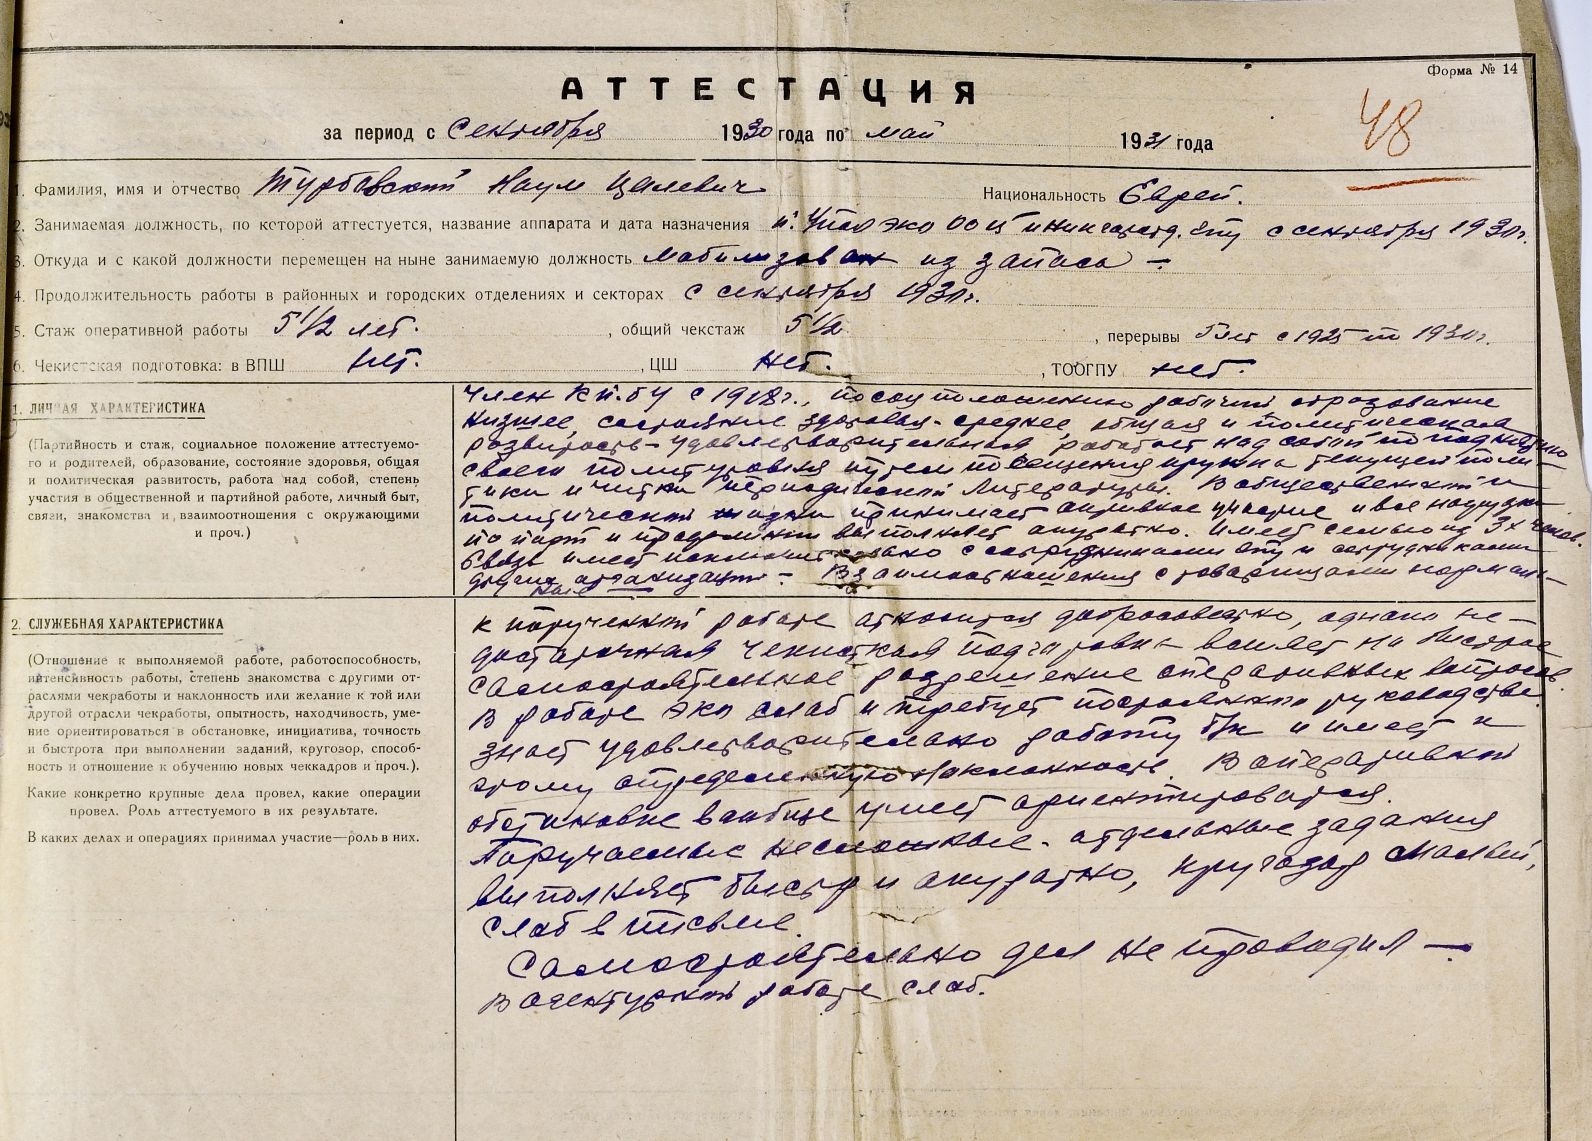 Форма № 14
АТТЕСТАЦИЯ
48
за период с Сентября 1930 года по май 1931 года
1. Фамилия, имя и отчество Турбовский Наум Цалевич Национальность Еврей.
2. Занимаемая должность, по которой аттестуется, название аппарата и дата назначения с сентября 1930г.
3. Откуда и с какой должности перемещен на ныне занимаемую должность мобилизован из запаса —
4. Продолжительность работы в районных и городских отделениях и секторах с сентября 1930г.
5. Стаж оперативной работы 5 1/2 лет. , общий чекстаж 5 1/2 , перерывы 5 лет с 1925 по 1930г.
6. Чекистская подготовка: в ВПШ нет. , ЦШ нет. , ТООГПУ нет.
1. ЛИЧНАЯ ХАРАКТЕРИСТИКА
(Партийность и стаж, социальное положение аттестуемо-
го и родителей, образование, состояние здоровья, общая
и политическая развитость, работа над собой, степень
участия в общественной и партийной работе, личный быт,
связи, знакомства и взаимоотношения с окружающими
и проч.)
Член КП.бУ с 1918г., по соц положению рабочий, образование
низшее, состояние здоровья - среднее, общая и политическая
развитость - удовлетворительная, работает над собой по поднятию
своего политуровня путем посещения кружка текущей поли-
тики и читки периодической литературы. В общественной и
политической жизни принимает активное участие и все нагрузки
по парт и профлинии выполняет акуратно. Имеет семью из 3х человек.
Связь имеет исключительно с сотрудниками ГПУ и сотрудниками
других организаций - Взаимоотношения с товарищами нормаль-
ные
2. СЛУЖЕБНАЯ ХАРАКТЕРИСТИКА
(Отношение к выполняемой работе, работоспособность,
интенсивность работы, степень знакомства с другими от-
раслями чекработы и наклонность или желание к той или
другой отрасли чекработы, опытность, находчивость, уме-
ние ориентироваться в обстановке, инициатива, точность
и быстрота при выполнении заданий, кругозор, способ-
ность и отношение к обучению новых чеккадров и проч.).
Какие конкретно крупные дела провел, какие операции
провел. Роль аттестуемого в их результате.
В каких делах и операциях принимал участие—роль в них.
к порученной работе относится добросовестно, однако не-
достаточная чекистская подготовка влияет на быстрое
самостоятельное разрешение оперативных вопросов.
В работе ЭКО слаб и требует постоянного руководства.
знает удовлетворительно работу и имеет к
этому определенную наклонность. В оперативной
обстановке вообще умеет ориентироваться.
Поручаемые несложные - отдельные задания
выполняет быстро и акуратно, кругозор малый,
слаб в письме.
Самостоятельно дел не проводил —
В агентурной работе слаб.